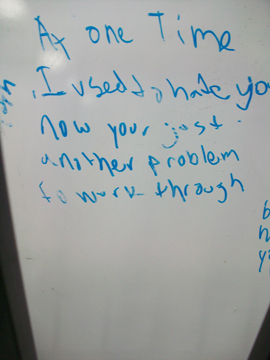 At one Time
I used to hate yo
now your just
another problem
to work through